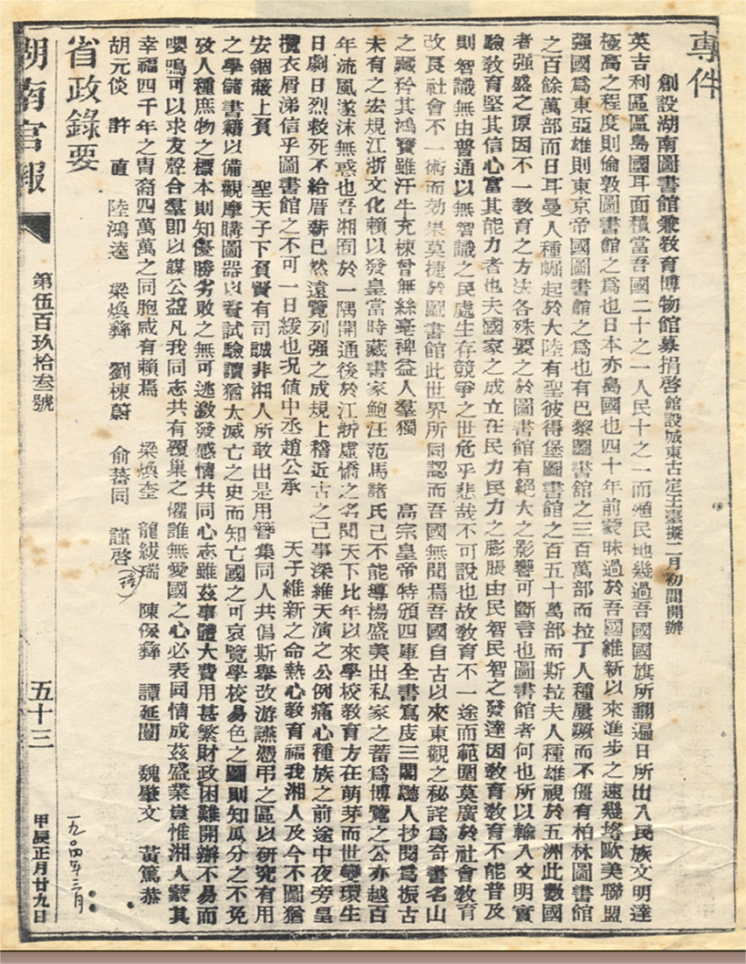 專件
創設湖南圖書館兼教育博物館募捐啓館設城東古定王臺擬二月初間開辦
英吉利區區島國耳面積當吾國二十之一人民十之一而殖民地幾過吾國國旗所翻遍日所出入民族文明達
極高之程度則倫敦圖書館之爲也日本亦島國也四十年前蒙昧過於吾國維新以來進步之速幾塔歐美聯盟
强國爲東亞雄則東京帝國圖書館之爲也有巴黎圖書館之三百萬部而拉丁人種屢蹶而不僵有柏林圖書館
之百餘萬部而日耳曼人種崛起於大陸有聖彼得堡圖書館之百五十萬部而斯拉夫人種雄視於五洲此數國
者强盛之原因不一教育之方法各殊要之於圖書館有絕大之影響可斷言也圖書館者何也所以輸入文明實
驗教育堅其信心富其能力者也夫國家之成立在民力民力之膨脹由民智民智之發達因教育教育不能普及
則智識無由普通以無智識之民處生存競爭之世危乎悲哉不可說也故教育不一途而範圍莫廣於社會教育
改良社會不一術而効果莫捷於圖書館此世界所同認而吾國無聞焉吾國自古以來東觀之秘詫爲奇書名山
之藏矜其鴻寶雖汗牛充棟曾無絲毫裨益人羣獨 高宗皇帝特頒四庫全書寫皮三閣聽人抄閱爲振古
未有之宏規江浙文化賴以發皇當時藏書家鮑汪范馬諸氏己不能導楊盛美出私家之蓄爲博覽之公亦越百
年流風遂沫無惑也吾湘囿於一隅開通後於江浙虛憍之名聞天下比年以來學校教育方在萌芽而世變環生
日劇日烈救死不給厝薪已然遠覽列强之成規上稽近古之己事深維天演之公例痛心種族之前途中夜旁皇
攬衣屑涕信乎圖書館之不可一日緩也况值中丞趙公承 天子維新之命熱心教育福我湘人及今不圖猶
安錮蔽上負 聖天子下負賢有司誠非湘人所敢出是用簪集同人共倡斯舉改游讌憑弔之區以硏究有用
之學儲書籍以備觀摩購圖器以資試驗讀猶太滅亡之史而知亡國之可哀覽學校易色之圖則知瓜分之不免
攷人種庶物之標本則知優勝劣敗之無可逃激發感情共同心志雖茲事體大費用甚繁財政困難開辦不易而
嚶鳴可以求友聲合羣即以謀公益凡我同志共有覆巢之懼誰無愛國之心必表同情成茲盛業豈惟湘人蒙其
幸福四千年之胄裔四萬萬之同胞咸有賴焉 梁煥奎 龍紱瑞 陳保彝 譚延闓 魏肇文 黃篤恭
胡元倓 許直 陸鴻逵 梁煥彝 劉棟蔚 俞蕃同 謹啓
省政錄要
湖南官報 第伍百玖拾叁號 五十三 甲辰正月廿九日
一九〇四年三月